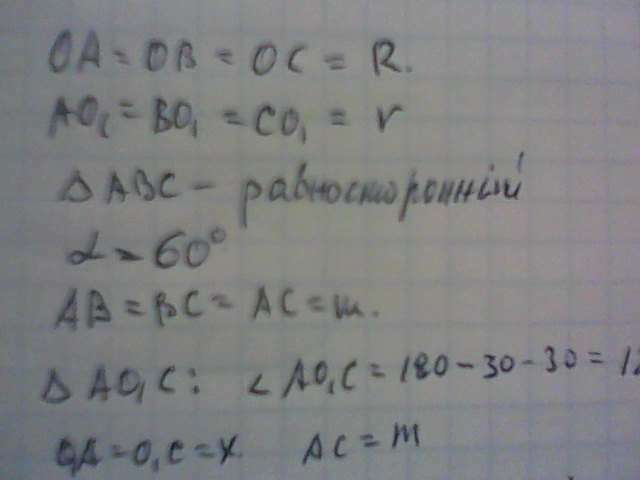 OA = OB = OC = R.
AO₁ = BO₁ = CO₁ = r
Δ ABC – равносторонний
α = 60°
AB = BC = AC = m.
Δ AO₁C: ∠ AO₁C = 180 – 30 – 30 = 12
O₁A = O₁C = x. AC = m